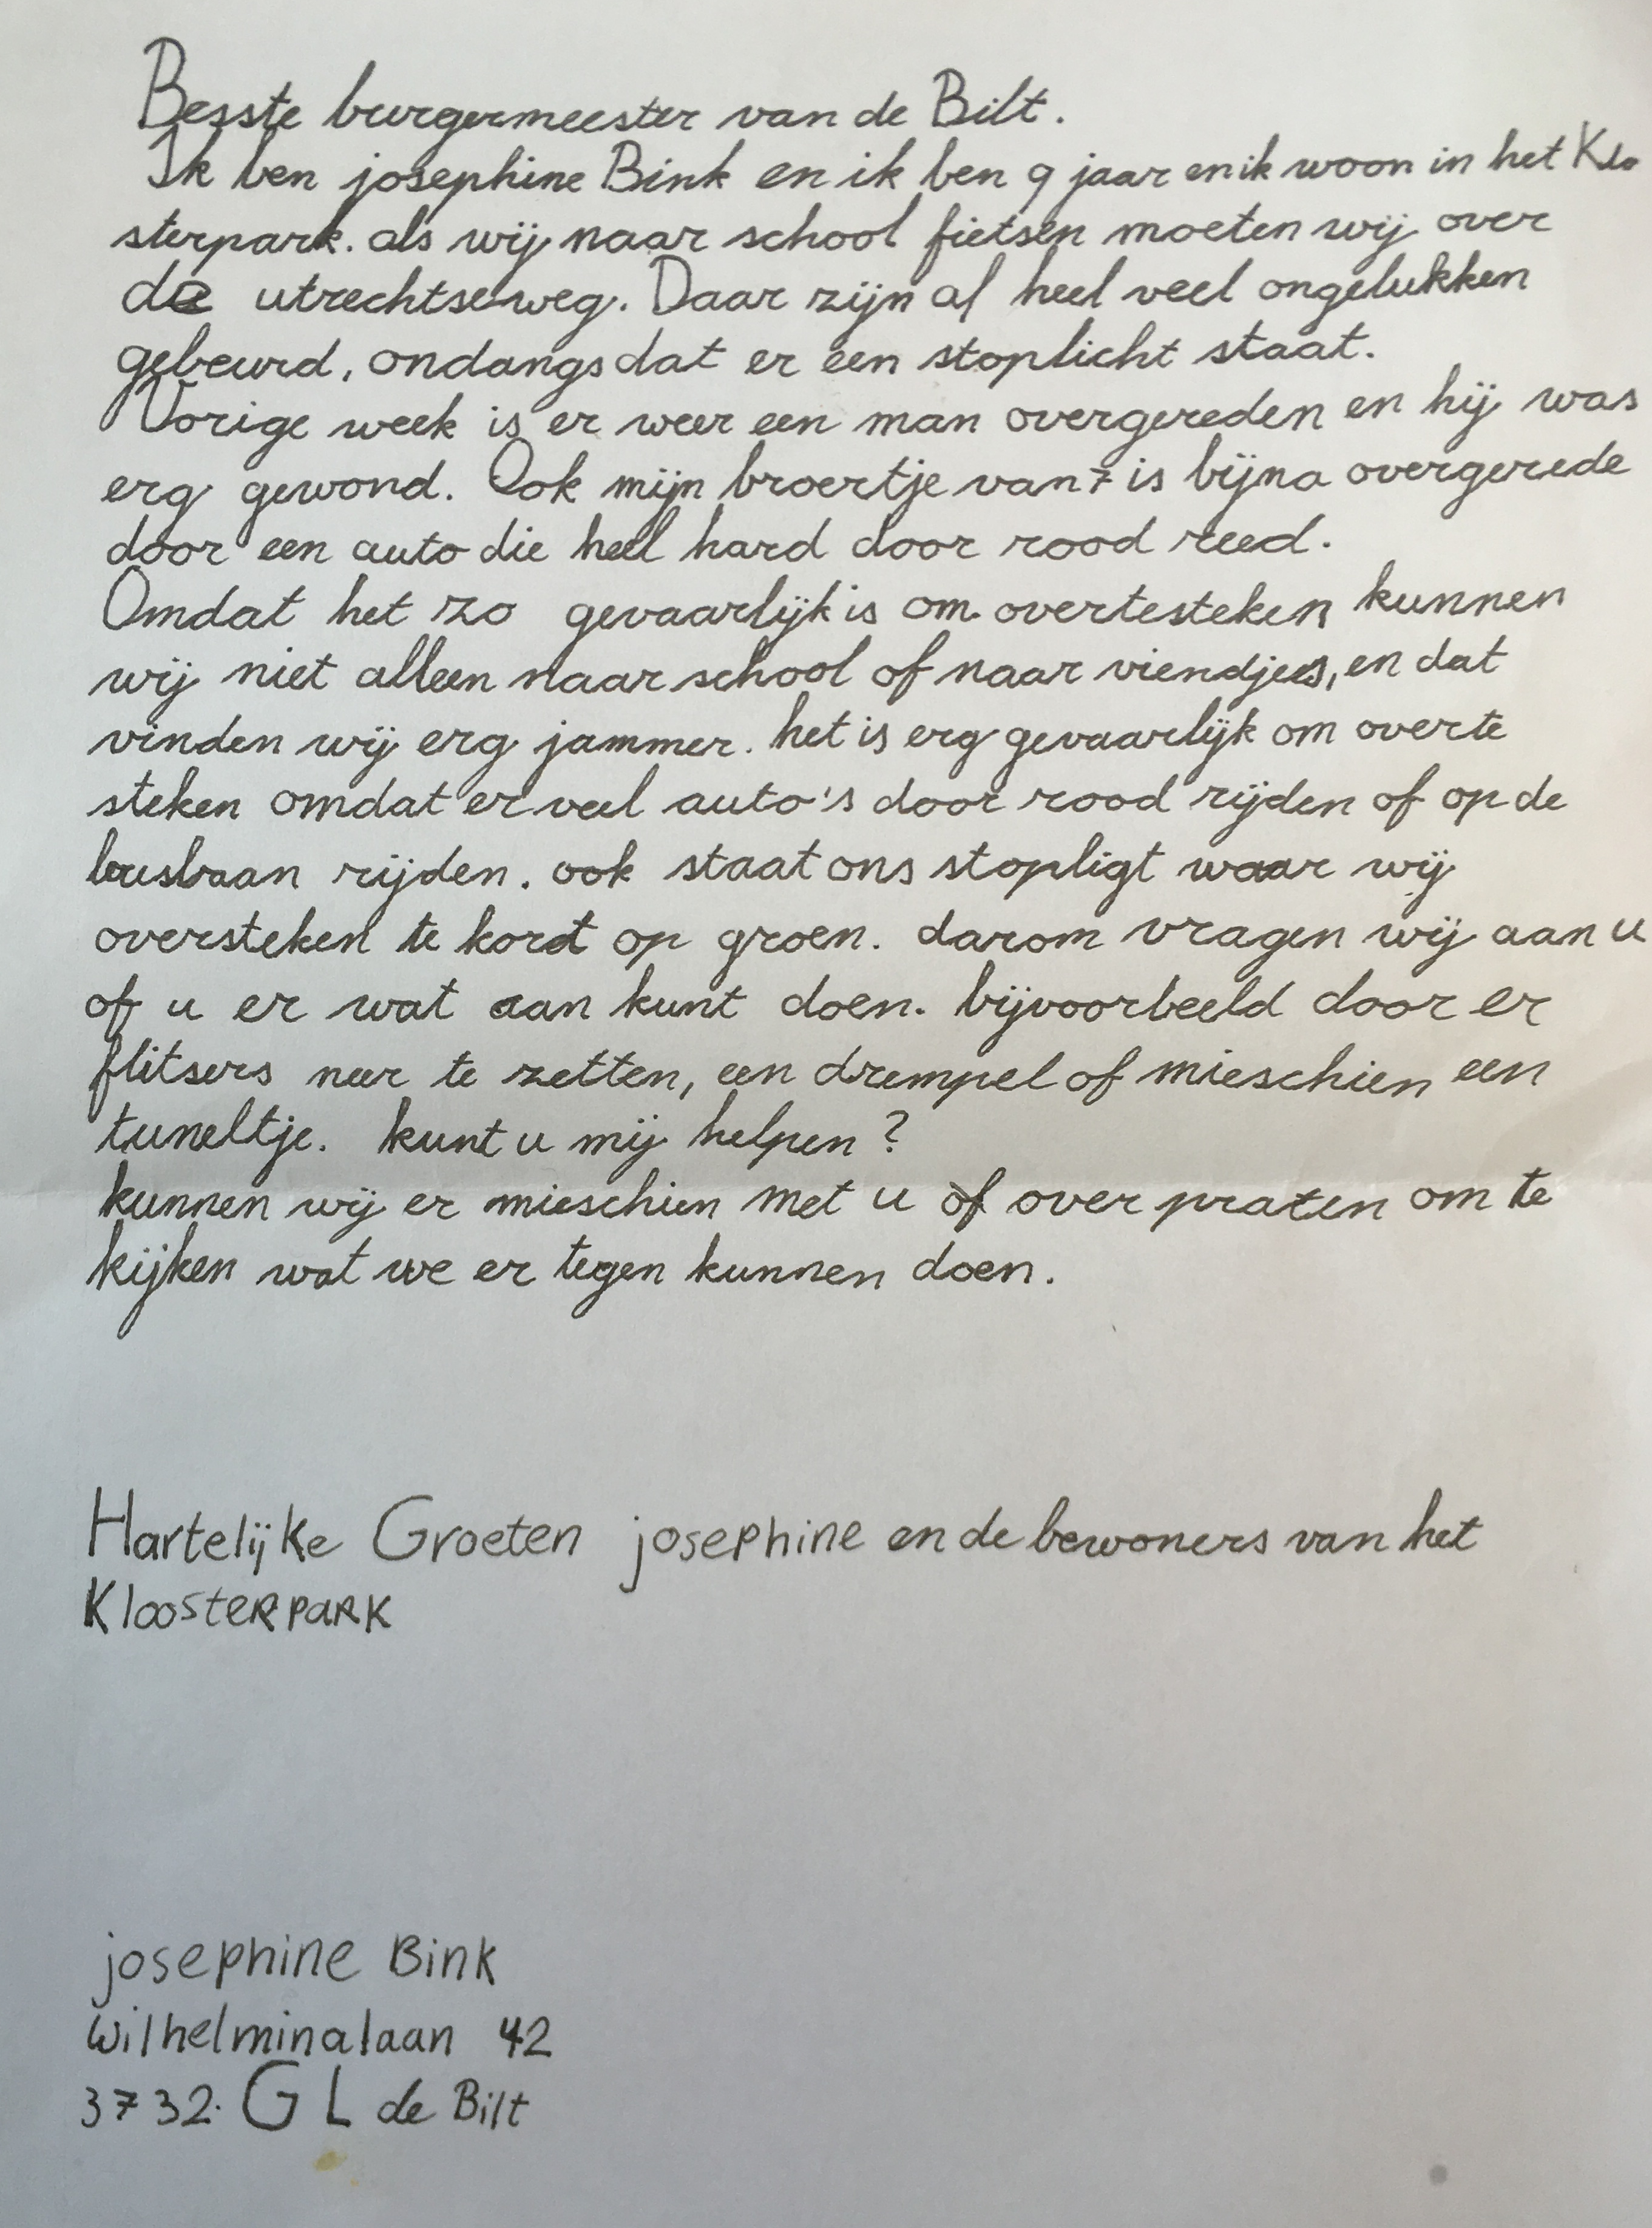 Besste burgermeester van de Bilt.
Ik ben josephine Bink en ik ben 9 jaar en ik woon in het Klo
sterpark. als wij naar school fietsen moeten wij over
de utrechtseweg. Daar zijn al heel veel ongelukken
gebeurd, ondangs dat er een stoplicht staat.
Vorige week is er weer een man overgereden en hij was
erg gewond. Ook mijn broertje van 7 is bijna overgerede
door een auto die heel hard door rood reed.
Omdat het zo gevaarlijk is om overtesteken kunnen
wij niet alleen naar school of naar viendjes, en dat
vinden wij erg jammer. het is erg gevaarlijk om overte
steken omdat er veel auto's door rood rijden of op de
busbaan rijden. ook staat ons stopligt waar wij
oversteken te kort op groen. darom vragen wij aan u
of u er wat aan kunt doen. bijvoorbeeld door er
flitsers neer te zetten, een drempel of mieschien een
tuneltje. kunt u mij helpen?
kunnen wij er mieschien met u of over praten om te
kijken wat we er tegen kunnen doen.
Hartelijke Groeten josephine en de bewoners van het
Kloosterpark
josephine Bink
Wilhelminalaan 42
3732. GL de Bilt